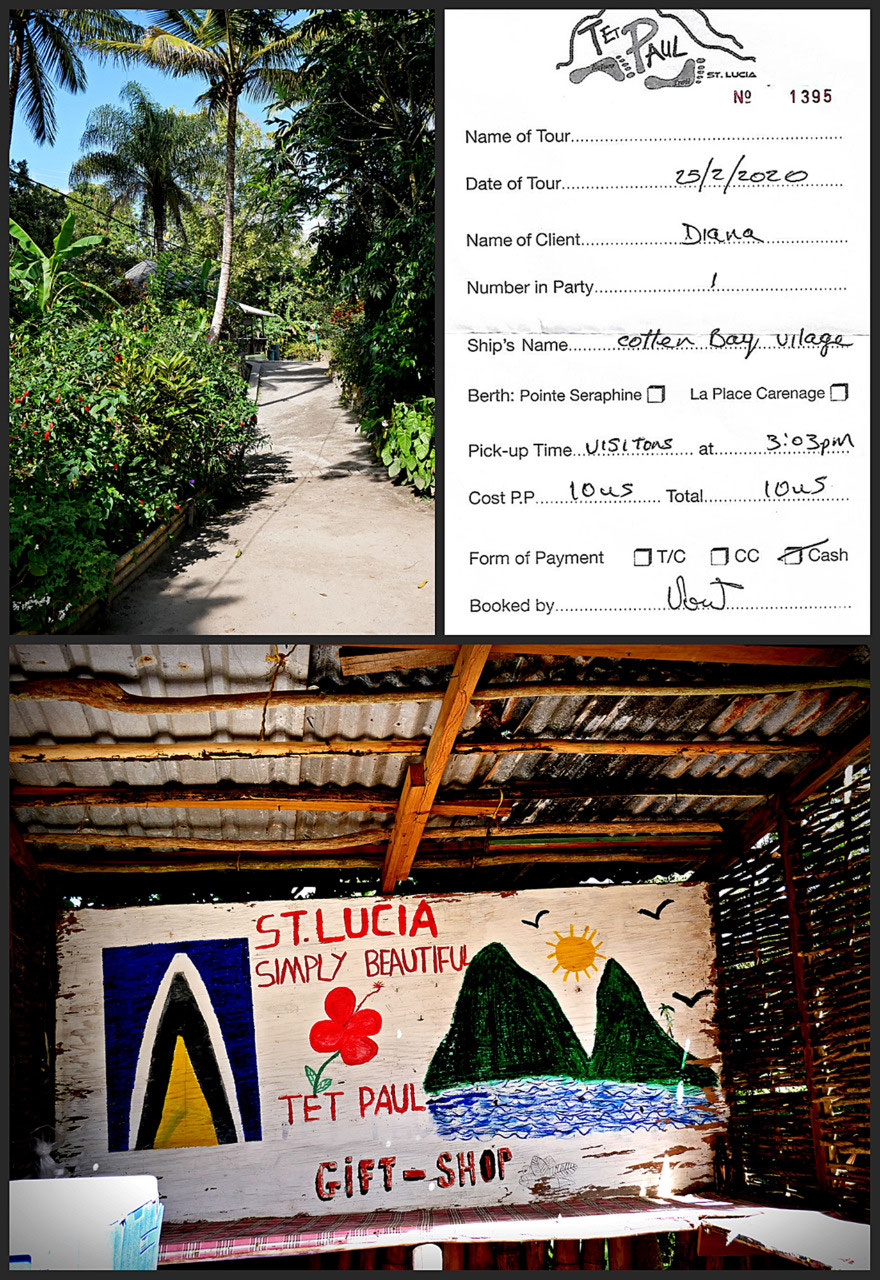 TET PAUL
ST. LUCIA
Nº 1395
Name of Tour
Date of Tour 25/2/2020
Name of Client Diana
Number in Party 1
Ship's Name cotten Bay village
Berth: Pointe Seraphine La Place Carenage
Pick-up Time visitors at 3:03pm
Cost P.P. 10 us Total 10 us
Form of Payment T/C CC Cash
Booked by
ST. LUCIA
SIMPLY BEAUTIFUL
TET PAUL
GIFT-SHOP